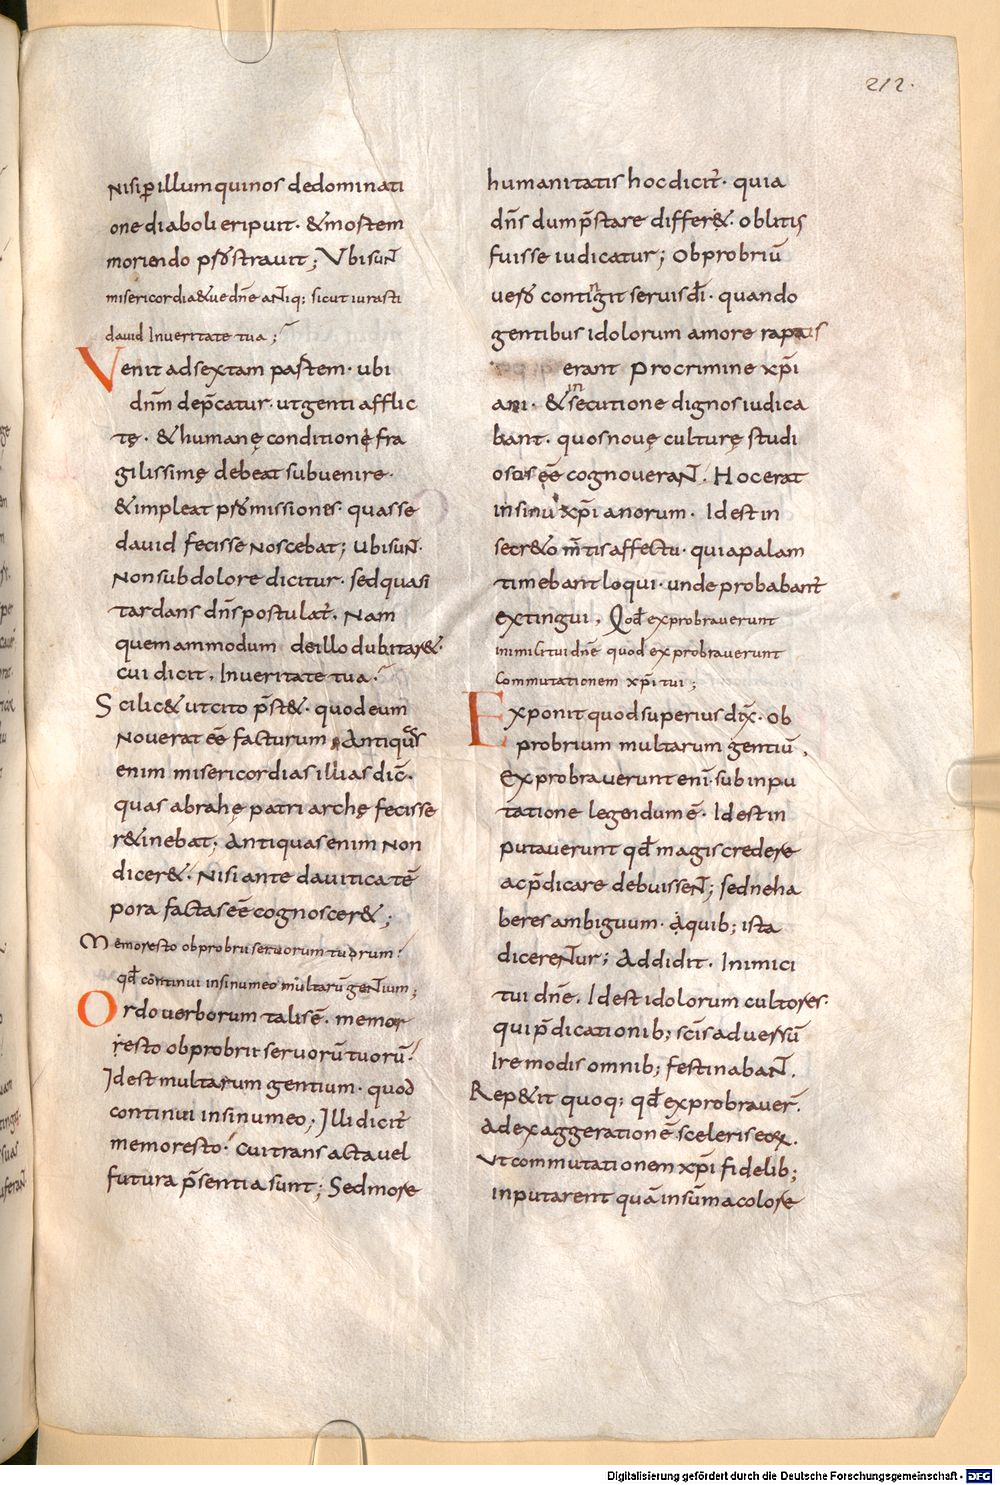 212.
nisi p̱ illum qui nos de dominati
one diaboli eripuit· & mortem
moriendo ꝓstravit; Ubi sunt
misericordiae tuae dn̄e antiq; sicut iurasti
david In veritate tua;
Venit ad sextam partem· ubi
dnm̄ dep̄catur· ut genti afflic
tę· & humanę conditionẹ fra
gilissimę debeat subvenire·
& impleat ꝓmissiones· quas se
david fecisse noscebat; Ubi sunt·
Non sub dolore dicitur· sed quasi
tardans dn̄s postulat̄· Nam
quem ammodum de illo dubitar&·
cui dicit· In veritate tua·
Scilic& ut cito p̄st&· quod eum
noverat eē facturum· Antiquas
enim misericordias illas dic̄·
quas abrahę patriarchę fecisse
r&inebat; Antiquas enim non
dicer&· Nisi ante davitica tē
pora factas eē cognoscer&;
Memor esto obprobrii servorum tuorum·
qđ continui in sinu meo multarū gentium;
Ordo verborum talis ē· memor
esto obprobrii servorū tuorū·
Id est multarum gentium· quod
continui in sinu meo; Illi dicit̄
memor esto· cui transacta vel
futura p̄sentia sunt; Sed more
humanitatis hoc dicit̄· quia
dn̄s dum p̄stare differ&· oblitus
fuisse iudicatur; Obprobriū
vero contingit servis dī· quando
gentibus idolorum amore raptatis
erant Pro crimine xp̄i
ani· & insecutione dignos iudica
bant· quos novę culturę studi
osos eē cognoverant· Hoc erat
in sinu xp̄ianorum· Id est in
secr&o m̄tis affectu· quia palam
timebant loqui· unde probabant̄
extingui· Qod exprobraverunt
inimici tui dn̄e quod exprobraverunt
Commutationem xp̄i tui;
Exponit quod superius dix̄· ob
probrium multarum gentiū·
Exprobraverunt enī· sub inpu
tatione legendum ē· Id est in
putaverunt qđ magis credere
ac p̄dicare debuissent; sed ne ha
beres ambiguum· A quib; ista
dicerentur; Addidit· Inimici
tui dn̄e· Id est idolorum cultores·
qui p̄dicationib; scīs adversū
Ire modis omnib; festinabant·
Rep&it quoq; qđ exprobraver̄·
Ad exaggerationē sceleris eoꝝ·
Ut commutationem xp̄i fidelib;
inputarent quā in summa colore
Digitalisierung gefördert durch die Deutsche Forschungsgemeinschaft - DFG